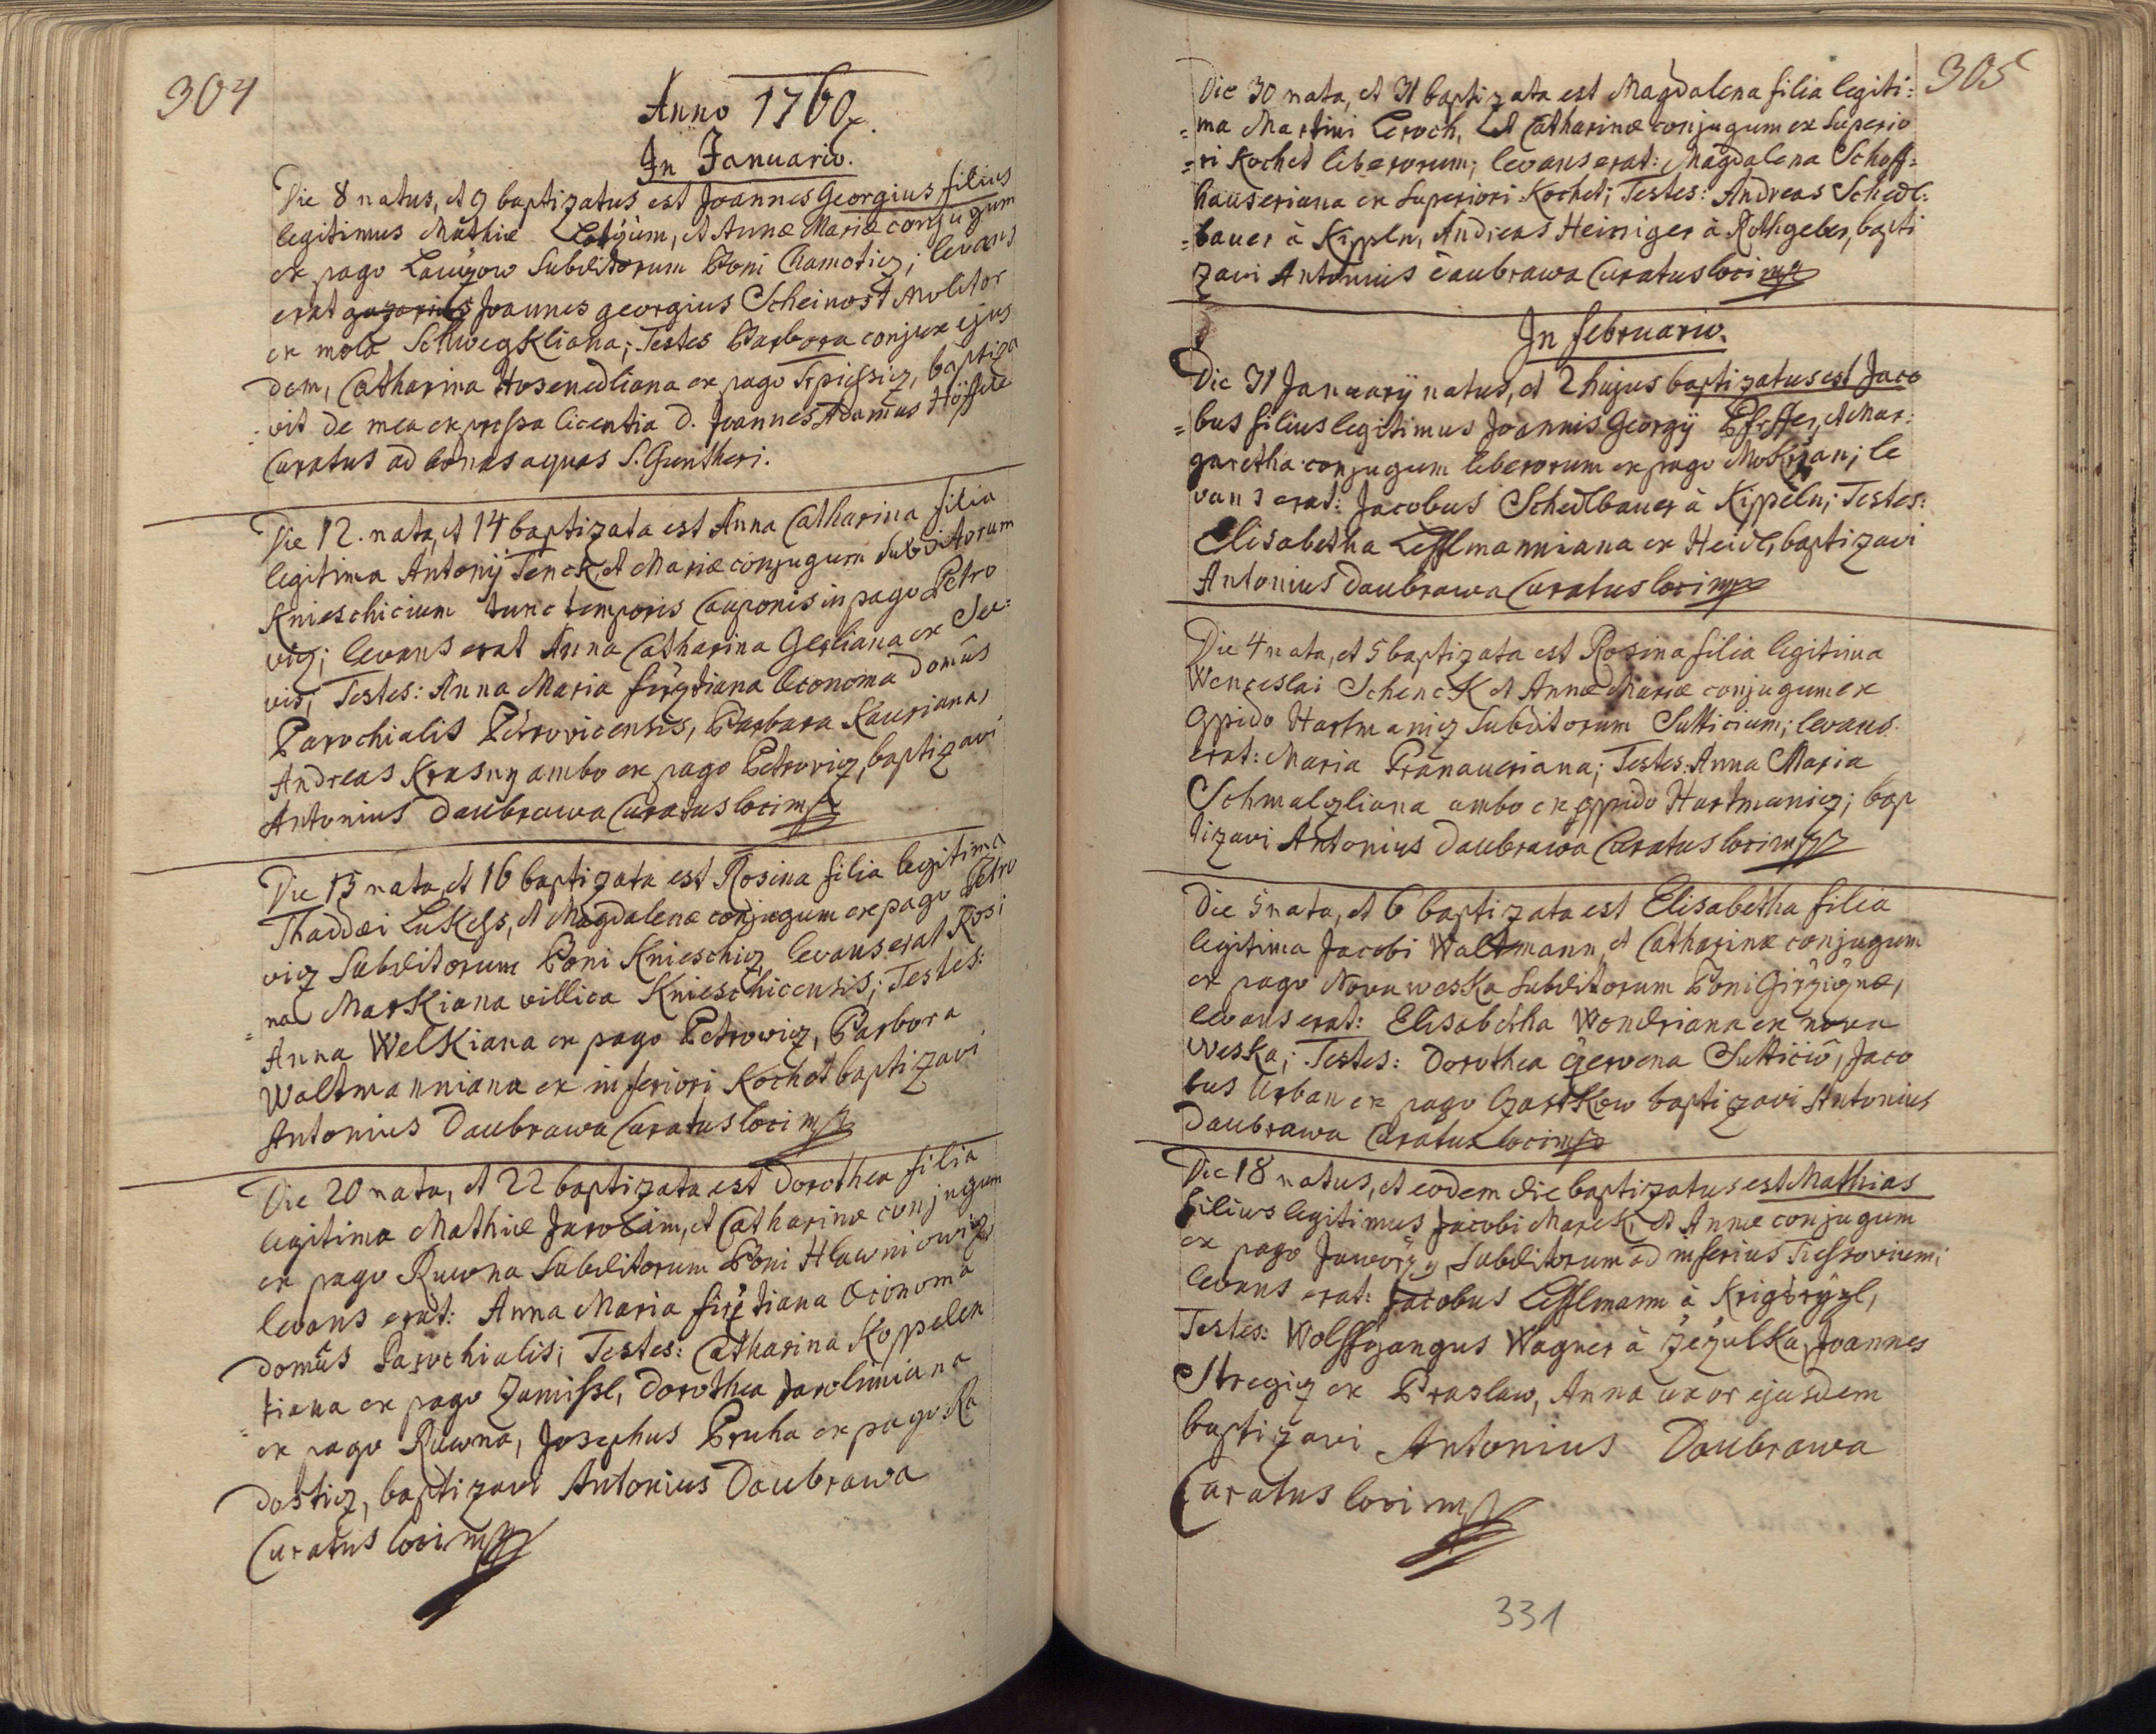 304
Anno 1760.
In Januario.
Die 8 natus, et 9 baptizatus est Joannes Georgius filius
legitimus Mathiæ et Annæ Mariæ conjugum
ex pago Subditorum Boni Chamoticz; levans
erat Joannes georgius Scheinost Molitor
ex mola Schwegkliana; Testes Barbora conjux ejus
dem, Catharina Hosenedliana ex pago baptiza
vit de mea expressa licentia D. Joannes Adamus
Curatus ad bonas aquas S. Guntheri.
Die 12. nata, et 14 baptizata est Anna Catharina filia
legitima Antonij Jenck, et Mariæ conjugum Subditorum
Knieschicium tunc temporis Cauponis in pago Petro
vicz; levans erat Anna Catharina Gerliana ex Se-
vis; Testes: Anna Maria Oeconoma domûs
Parochialis Petrovicensis, Barbara Kauriana,
Andreas Krasny ambo ex pago Petrovicz, baptizavi
Antonius Daubrawa Curatus loci mp
Die 15 nata, et 16 baptizata est Rosina filia legitima
Thaddæi Lukess, et Magdalenæ conjugum ex pago Petro
vicz Subditorum Boni Knieschicz, levans erat Rosi
=na Markiana villica Knieschicensis; Testes:
Anna Welkiana ex pago Petrovicz, Barbora
Waltmanniana ex inferiori Kochet baptizavi
Antonius Daubrawa Curatus loci mp
Die 20 nata, et 22 baptizata est Dorothea filia
legitima Mathiæ Jarolim, et Catharinæ conjugum
ex pago Ruwna Subditorum Boni Hlawniowicz,
levans erat: Anna Maria Oeconoma
domûs Parochialis; Testes: Catharina Koppelen
=tiana ex pago Zamissl, Dorothea Jarolimiana
ex pago Ruwna, Josephus Bruha ex pago Ra
dosticz, baptizavi Antonius Daubrawa
Curatus loci mp
305
Die 30 nata, et 31 baptizata est Magdalena filia legiti:
=ma Martini Leroch, et Catharinæ conjugum ex Superio
=ri Kochet liberorum; levans erat: Magdalena Schaff=
hauseriana ex Superiori Kochet; Testes: Andreas Schedl:
=bauer à Kippln, Andreas Heiniger à Rothgeber, bapti
zavi Antonius Daubrawa Curatus loci mp
In februario.
Die 31 Januarij natus, et 2 hujus baptizatus est Jaco
=bus filius legitimus Joannis Georgij et Mar:
garetha conjugum liberorum ex pago Mokrzan; le
vans erat: Jacobus Schedlbauer à Kippeln; Testes:
Elisabetha Lesslmanniana ex Heidl, baptizavi
Antonius Daubrawa Curatus loci mp
Die 4 nata, et 5 baptizata est Rosina filia legitima
Wenceslai Schenck et Annæ Mariæ conjugum ex
oppido Hartmanicz Subditorum Sutticium; levans
erat: Maria Pranaueriana; Testes: Anna Maria
Schmalzliana ambo ex oppido Hartmanicz; bap
tizavi Antonius Daubrawa Curatus loci mp
Die 5 nata, et 6 baptizata est Elisabetha filia
legitima Jacobi Waltmann, et Catharinæ conjugum
ex pago Nova weska Subditorum Boni
levans erat: Elisabetha Wondriana ex nova
weska; Testes: Dorothea Sutticiô, Jaco
bus Urban ex pago Czastkow baptizavi Antonius
Daubrawa Curatus loci mp
Die 18 natus, et eodem die baptizatus est Mathias
filius legitimus Jacobi Marek, et Annæ conjugum
ex pago Jaworzy, Subditorum ad inferius
levans erat: Jacobus Lesslmann à
Testes: Wolffgangus Wagner à Zezulka, Joannes
Stregicz ex Braslaw, Anna uxor ejusdem
baptizavi Antonius Daubrawa
Curatus loci mp
331